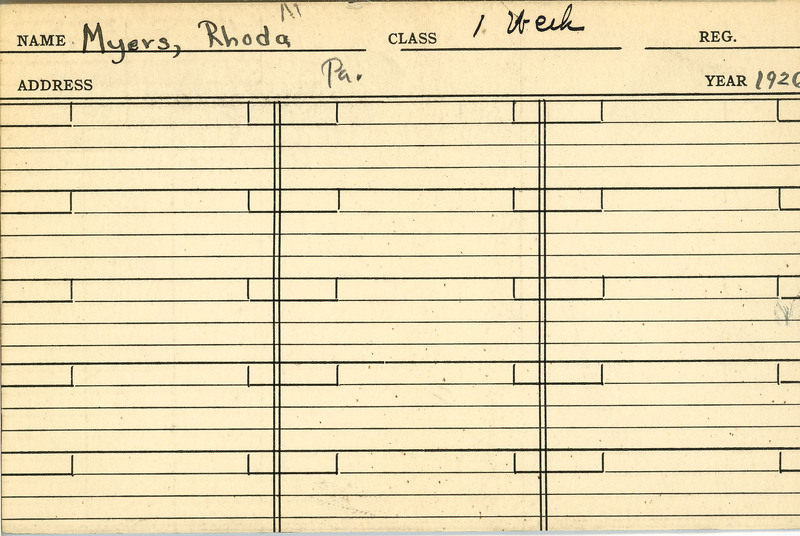 NAME Myers, Rhoda CLASS 1 Week REG.
ADDRESS Pa. YEAR 1920